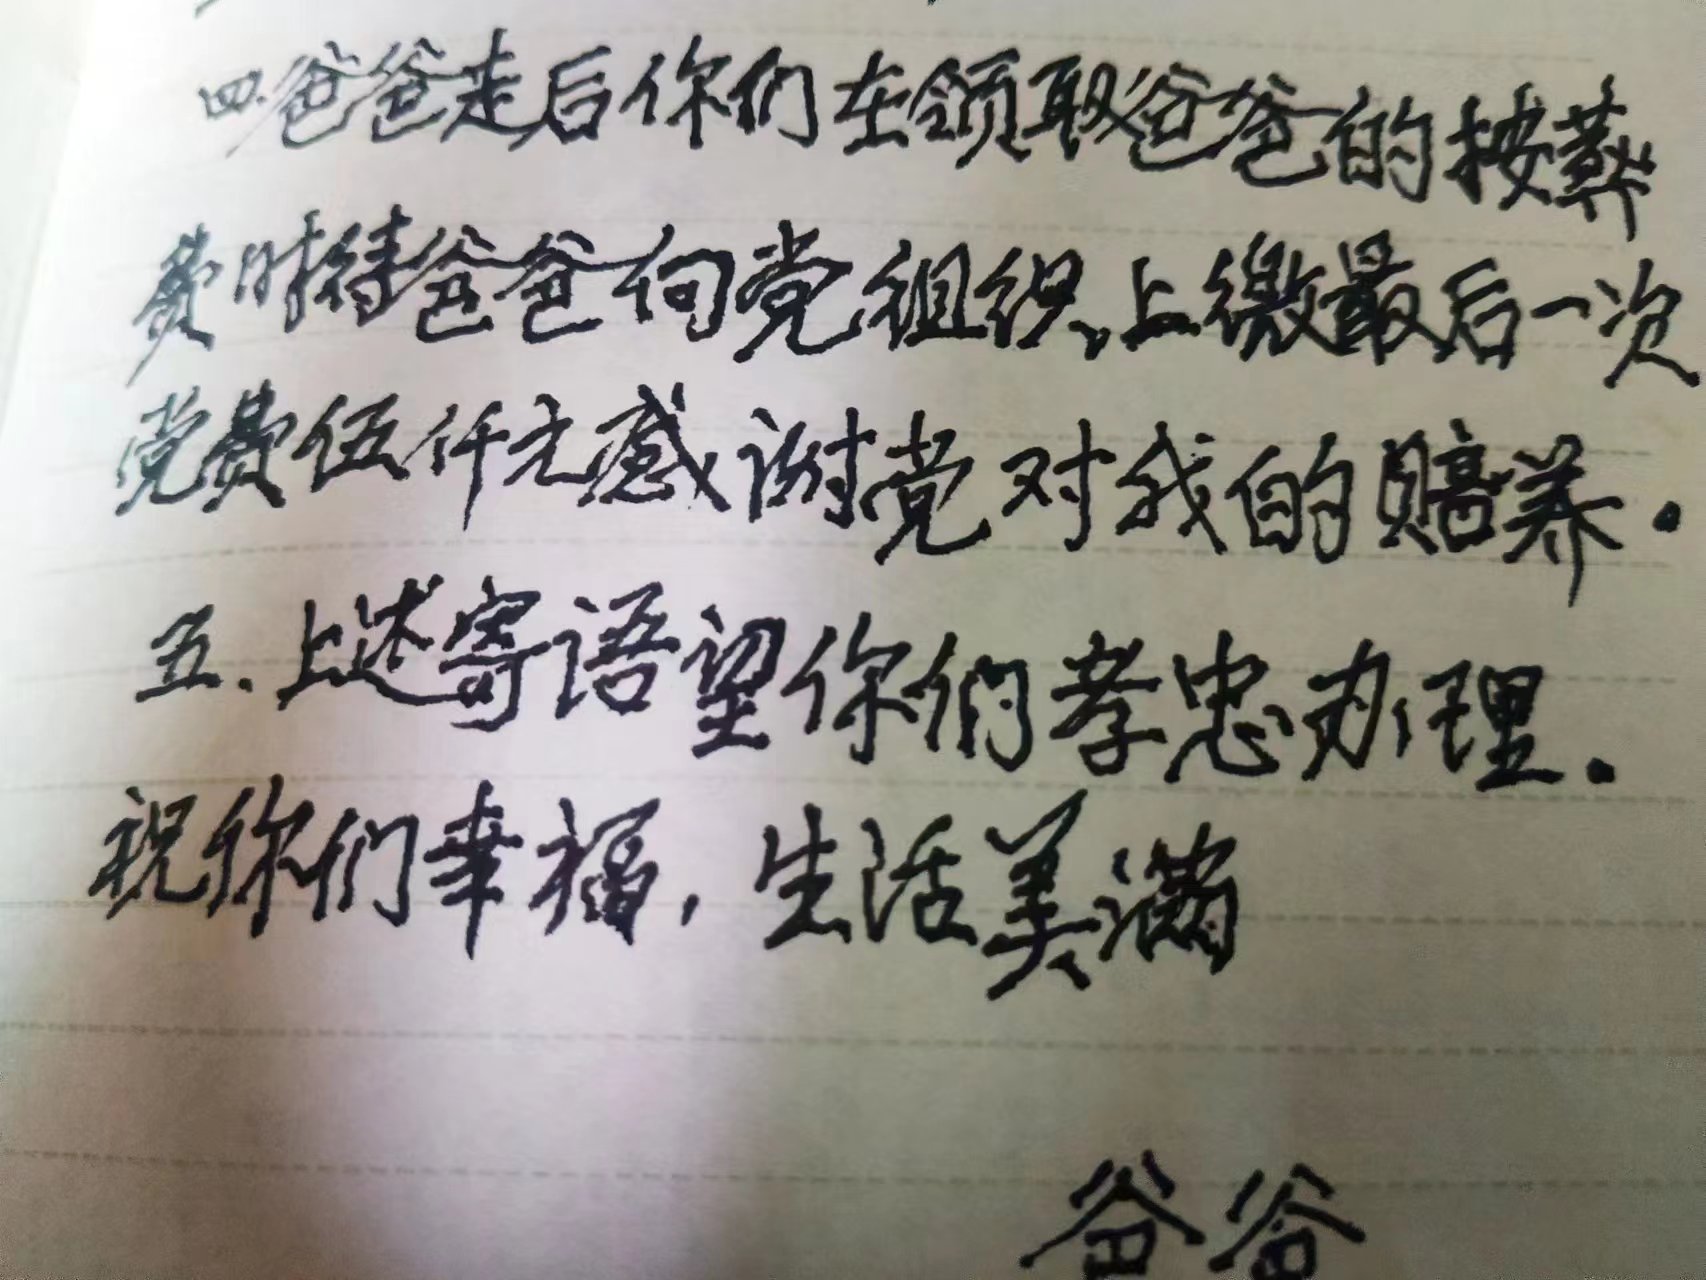 四.爸爸走后你们在领取爸爸的按葬
费时待爸爸向党组织上缴最后一次
党费伍仟元感谢党对我的赔养.
五.上述寄语望你们孝忠办理.
祝你们幸福,生活美满
爸爸